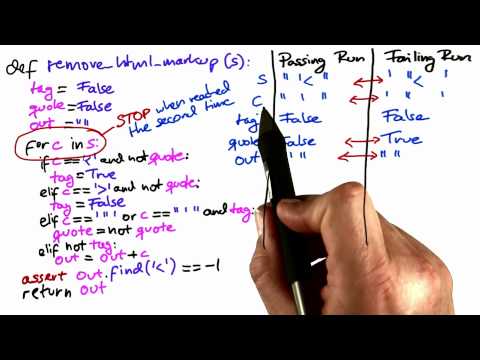 def remove_html_markup(s):
tag = False
quote = False
out = ""
for c in s:
STOP when reached
the second time
if c == '<' and not quote:
tag = True
elif c == '>' and not quote:
tag = False
elif c == '"' or c == "'" and tag:
quote = not quote
elif not tag:
out = out + c
assert out.find('<') == -1
return out
Passing Run Failing Run
S
C
tag False False
quote False True
out